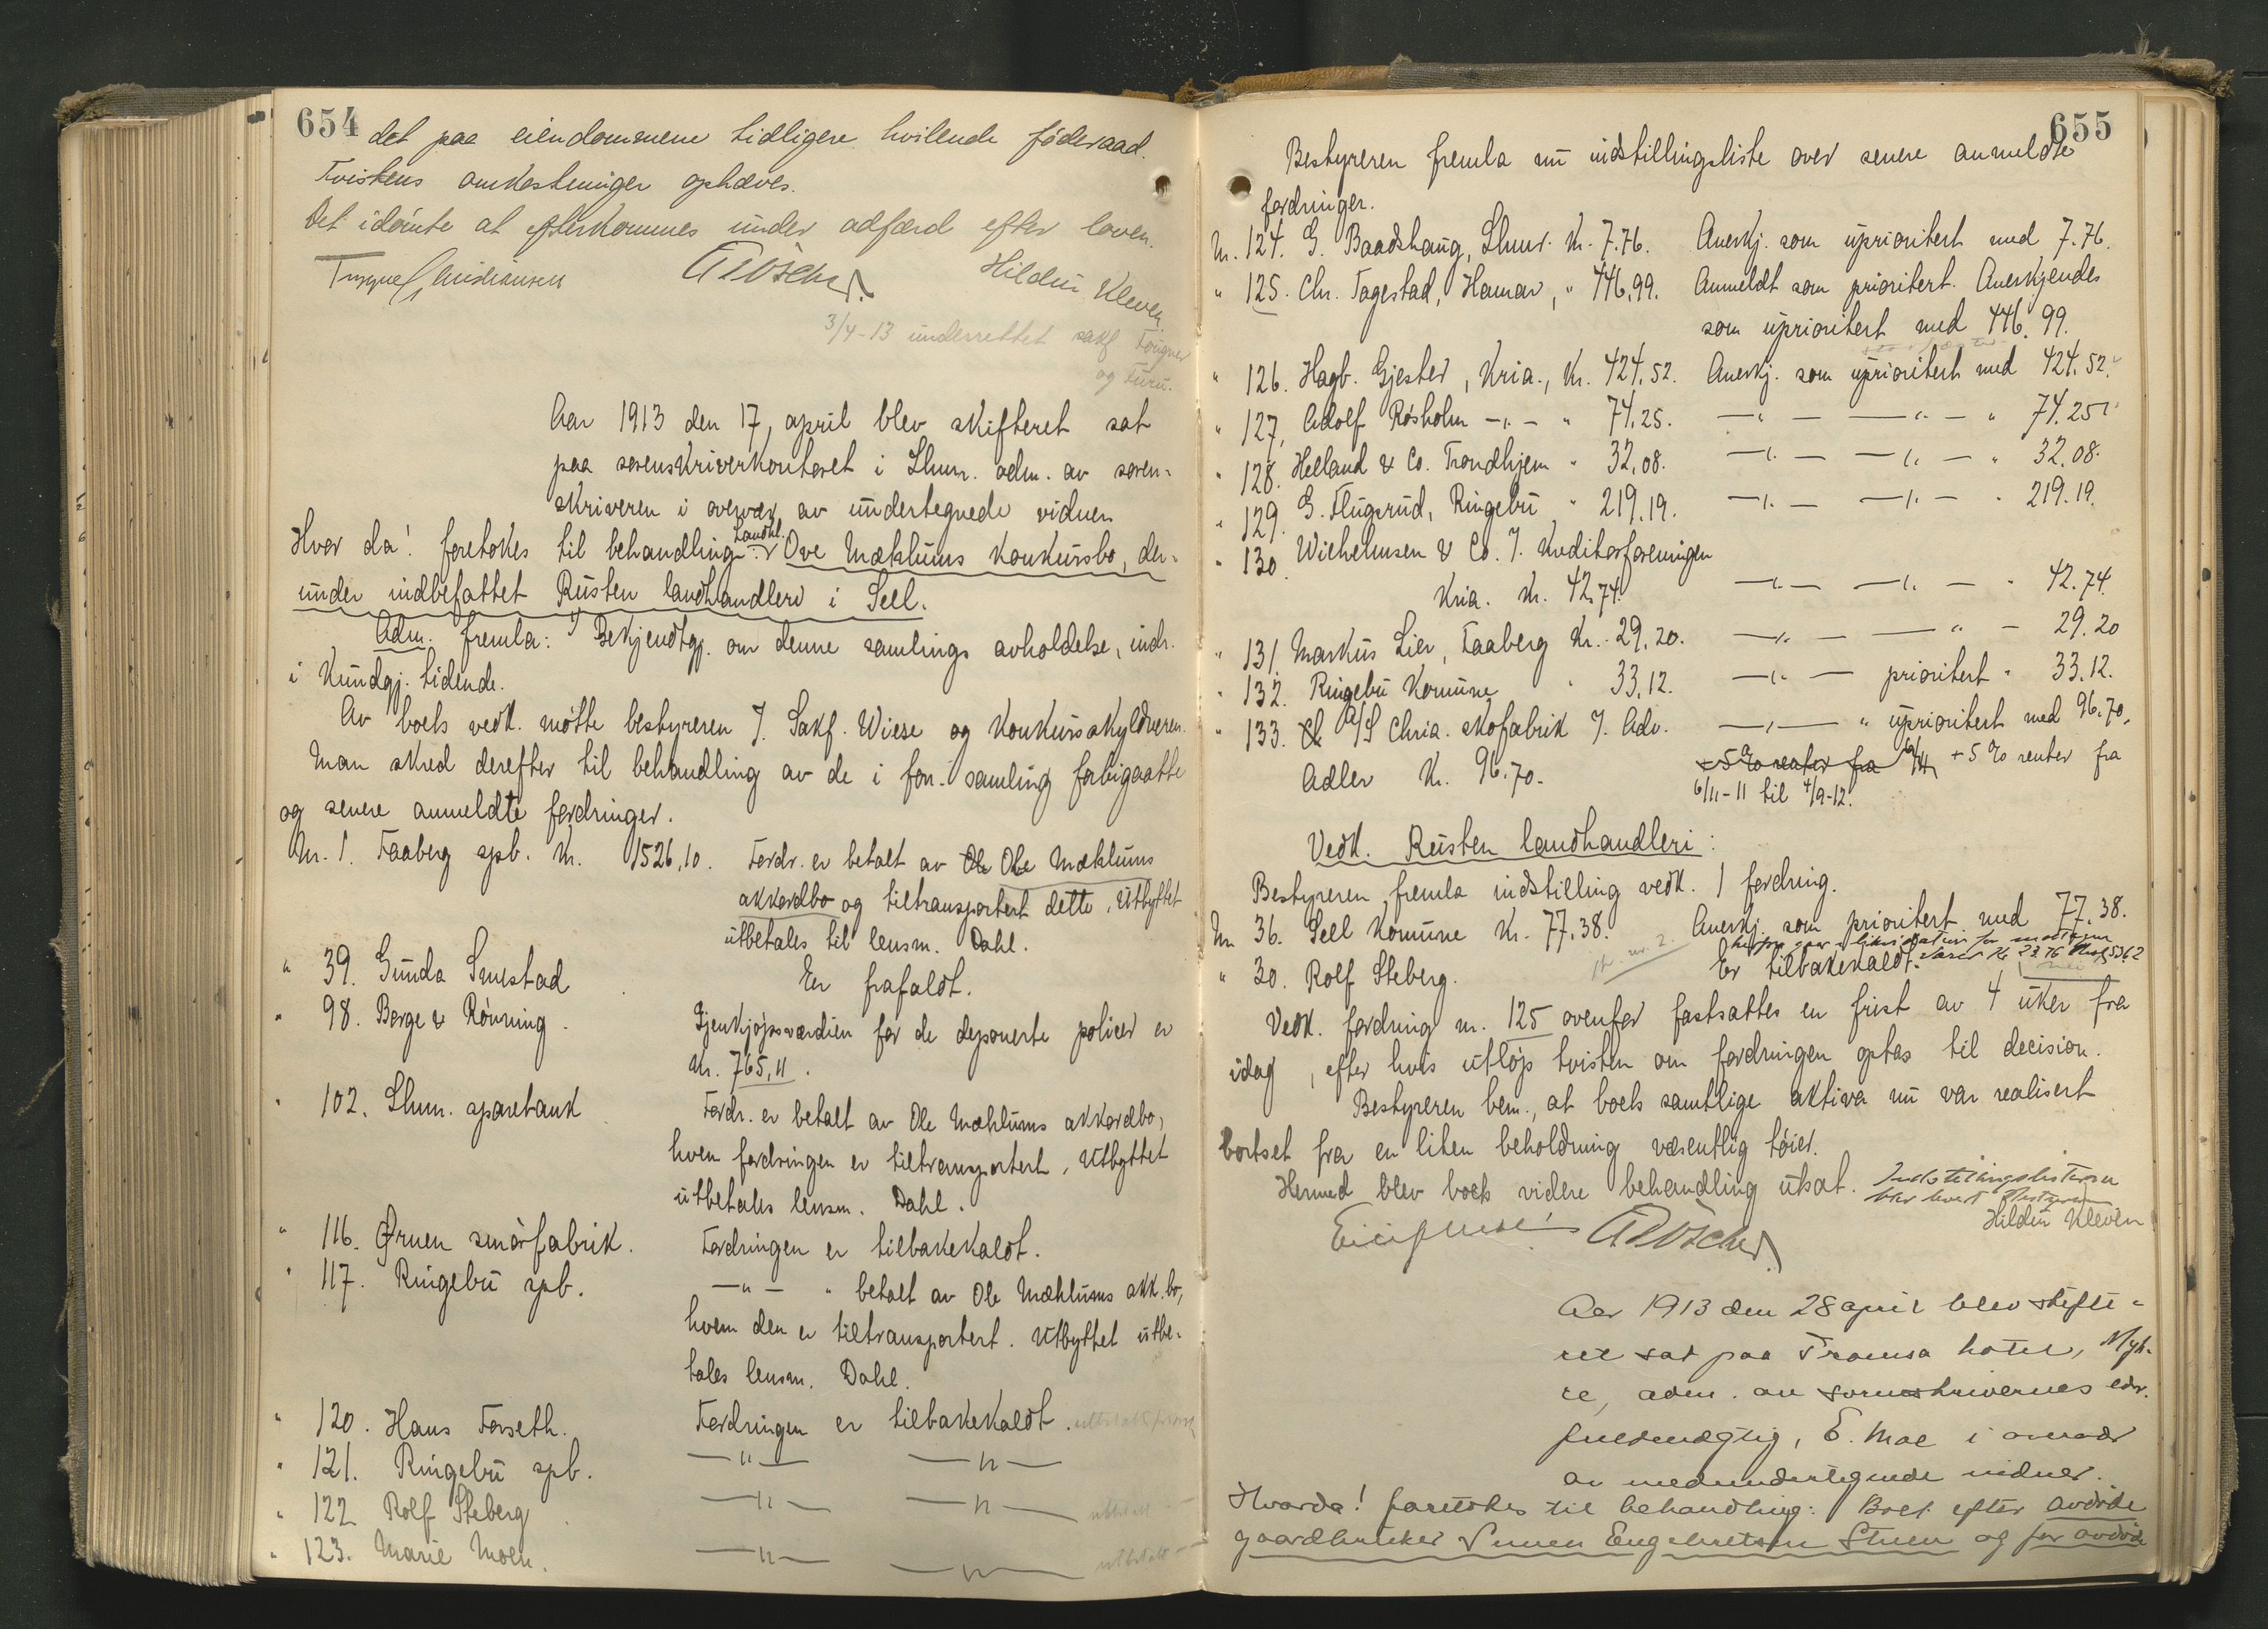 654
det paa eiendommene tidligere hvilende föderaad.
Tvistens omkostninger ophæves.
Det idömte at efterkommes under adfærd efter loven.
Hildur Kleven
3/4-13 underrettet sakf. Fougner
og Furu.
Aar 1913 den 17, april blev skifteret sat
paa sorenskriverkontoret i Lhmr. adm. av soren-
skriveren i overvær av undertegnede vidner
Hvor da! foretokes til behandling: Landhl. Ove Mæhlums konkursbo, der-
under indbefattet Rusten landhandleri i Sell.
Adm. fremla: 1) Bekjendtgj. om denne samlings avholdelse, indr.
i Kundgj. tidende.
Av boets vedk. mötte bestyreren J. Sakf. Wiese og konkursskyldneren.
Man skred derefter til behandling av de i forr. samling forbigaatte
og senere anmeldte fordringer.
Nr. 1. Faaberg spb. Kr. 1526,10. Fordr. er betalt av Ole Ole Mæhlums
akkordbo og tiltransportert dette. Utbyttet
utbetales til lensm. Dahl.
" 39. Gunda Smestad Er frafaldt.
" 98. Berge & Rönning. Gjenkjöpsværdien for de deponerte policer er
Kr. 765,11.
" 102. Lhmr. sparebank Fordr. er betalt av Ole Mæhlums akkordbo,
hvem fordringen er tiltransportert. Utbyttet
utbetales lensm. Dahl.
" 116. Ørnen smörfabrik. Fordringen er tilbakekaldt.
" 117. Ringebu spb. —"— " betalt av Ole Mæhlums akk.bo,
hvem den er tiltransportert. Utbyttet utbe-
tales lensm. Dahl.
" 120. Hans Forseth. Fordringen er tilbakekaldt.
" 121. Ringebu spb. —"— —"—
" 122 Rolf Steberg —"— —"—
" 123. Marie Moen. —"— —"—
655
Bestyreren fremla nu indstillingsliste over senere anmeldte
fordringer.
Nr. 124. G. Baadshaug, Lhmr. Kr. 7.76. Anerkj. som uprioritert med 7.76.
" 125. Chr. Fagestad, Hamar, " 446.99. Anmeldt som prioritert. Anerkjendes
som uprioritert med 446.99.
" 126. Hagb. Gjester, Kria., Kr. 424.52. Anerkj. som uprioritert med 424.52.
" 127, Adolf Rosholm —"— " 74.25. —"— —"— " 74.25
" 128. Helland & Co. Trondhjem " 32,08. —"— —"— " 32.08.
" 129. G. Flugsrud, Ringebu " 219,19. —"— —"— " 219.19.
" 130. Wilhelmsen & Co. J. Kreditorforeningen
Kria. Kr. 42.74. —"— —"— " 42.74.
" 131. Markus Lier, Faaberg Kr. 29.20. —"— —"— 29.20
" 132. Ringebu Komune " 33,12. —"— prioritert " 33.12.
" 133. A/S Chria. skofabrik J. Adv. —"— " uprioritert med 96.70,
Adler Kr. 96.70. + 5 % renter fra + 5 % renter fra
6/11-11 til 4/9-12.
Vedk. Rusten landhandleri:
Bestyreren fremla indstilling vedk. 1 fordring.
Nr 36. Sell Komune Kr. 77.38. Anerkj. som prioritert med 77.38.
" 30. Rolf Steberg. Er tilbakekaldt.
Vedk. fordring nr. 125 ovenfor fastsattes en frist av 4 uker fra
idag, efter hvis utlöp tvisten om fordringen optas til decision.
Bestyreren bem., at boets samtlige aktiva nu var realisert
bortset fra en liten beholdning væsentlig töier.
Hermed blev boets videre behandling utsat. Indstillingslisterne
blev levert Bestyreren
Hildur Kleven
Aar 1913 den 28 april blev skifte-
ret sat paa Tromsa hotel, Myh-
re, adm. av sorenskriverens edsv.
fuldmægtig, E. Moe i overvær
av medundertegnede vidner.
Hvorda! foretokes til behandling: Boet efter avdöde
gaardbruker Simen Engebretsen Stuen og for avdöde